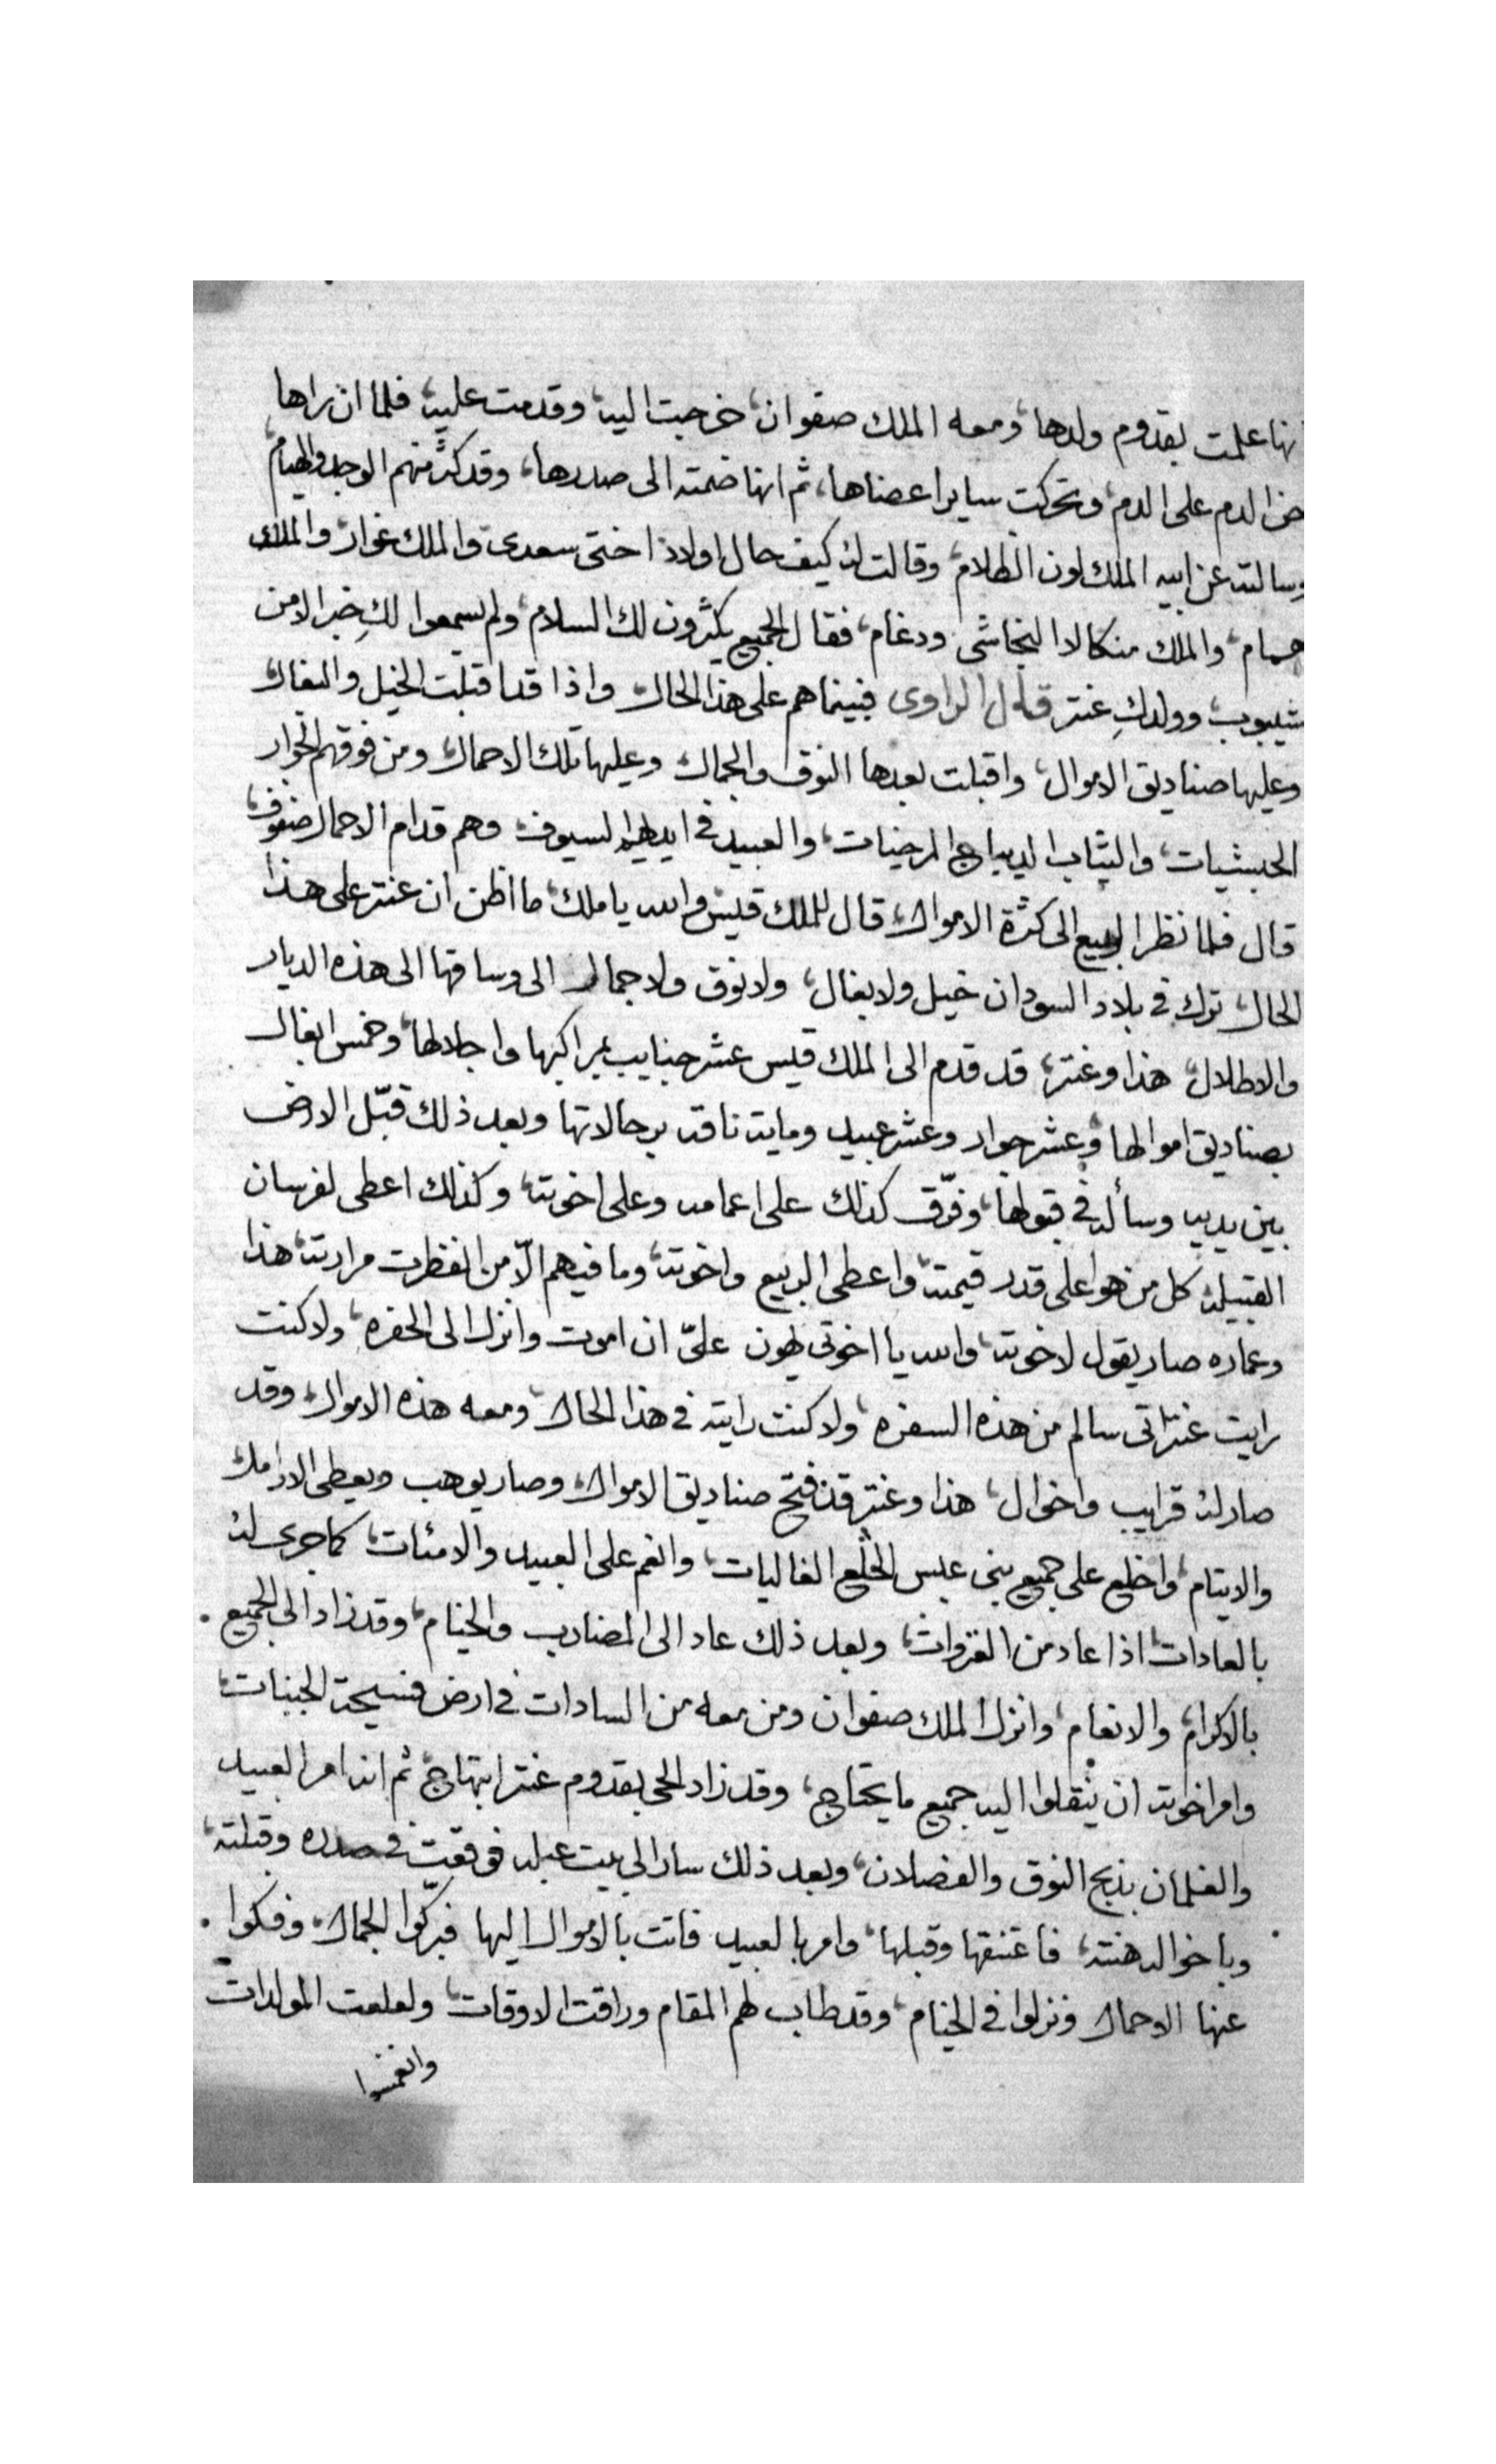 انها علمت بقدوم ولدها، ومعه الملك صفوان، خرجت اليه، وقدمت عليه، فلما ان راها
حن الدم على الدم، وتحركت ساير اعضاها، ثم انها ضمته الى صدرها، وقد كثر منهم الوجد والهيام،
وسالته عن ابيه الملك لون الظلام، وقالت له كيف حال اولاد اختى سعدى، والملك غوار، والملك
همام، والملك منكالا النجاشى ودغام، فقال الجميع يكثرون لك السلام، ولم يسمعوا لكِ خبر الا من
شيبوب، وولدكِ عنتر قال الراوى فبينما هم على هذا الحال، واذا قد اقبلت الخيل والبغال،
وعليها صناديق الاموال، واقبلت بعدها النوق والجمال، وعليها تلك الاحمال، ومن فوقهم الجوار
الحبشيات، والثياب الديباج المرخيات، والعبيد فى ايديهم السيوف، وهم قدام الاحمال صفوف،
قال فلما نظر الربيع الى كثرة الاموال، قال للملك قيس والله يا ملك، ما اظن ان عنتر على هذا
الحال، ترك فى بلاد السودان خيل ولا بغال، ولا نوق ولا جمال الى وساقها الى هذه الديار
والاطلال، هذا وعنتر، قد قدم الى الملك قيس عشر جنايب بمراكبها واجلالها، وخمس ابغال
بصناديق اموالها، وعشر جوار وعشر عبيد وماية ناقة برحالاتها وبعد ذلك قبّل الارض
بين يديه وسأله فى قبولها، وفرّق كذلك على اعمامه وعلى اخوته، وكذلك اعطى لفرسان
القبيله كل من هوا على قدر قيمته، واعطى الربيع واخوته، وما فيهم الّا من انفطرت مرارته، هذا
وعماره صار يقول لاخوته، والله يا اخوتى يهون علىّ ان اموت وانزل الى الحفره، ولا كنت
رايت عنتر اتى سالم من هذه السفره، ولا كنت رايته فى هذا الحال، ومعه هذه الاموال، وقد
صار له قرايب واخوال، هذا وعنتر قد فتح صناديق الاموال، وصار يوهب ويعطى الارامل
والايتام، واخلع على جميع بنى عبس الخلع الغاليات، وانعم على العبيد والامئات، كما جرى له
بالعادات، اذا عاد من الغزوات، وبعد ذلك عاد الى المضارب والخيام، وقد زاد الى الجميع.
بالاكرام، والانعام، وانزل الملك صفوان ومن معه من السادات فى ارض فسيحة الجنبات،
وامر اخوته ان ينقلوا اليه جميع ما يحتاج، وقد زاد الحى بقدوم عنتر ابتهاج، ثم انه امر العبيد
والغلمان بذبح النوق والفضلان، وبعد ذلك سار الى بيت عبله فوقعت فى صدره وقبلته،
وباخواله هنته، فاعتنقها وقبلها، وامر بالعبيد فاتت بالاموال اليها فبرّكوا الجمال، وفكوا.
عنها الاحمال ونزلوا فى الخيام، وقد طاب لهم المقام وراقت الاوقات، ولعلعت المولدات